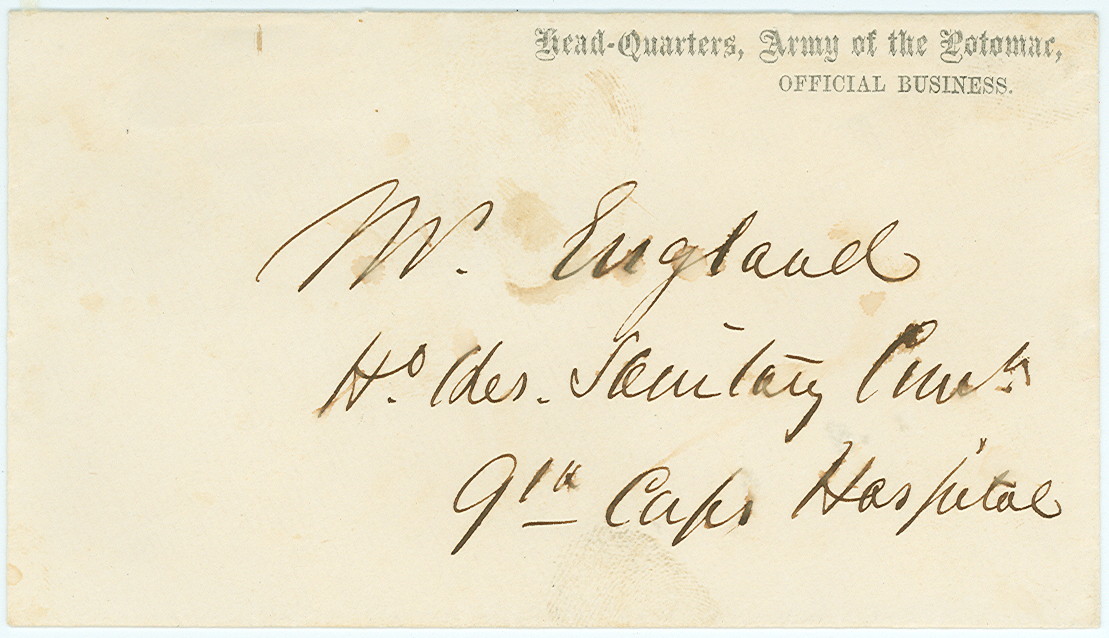 Head-Quarters, Army of the Potomac,
OFFICIAL BUSINESS.
Mr. England
Sanitary
9th Corps Hospital